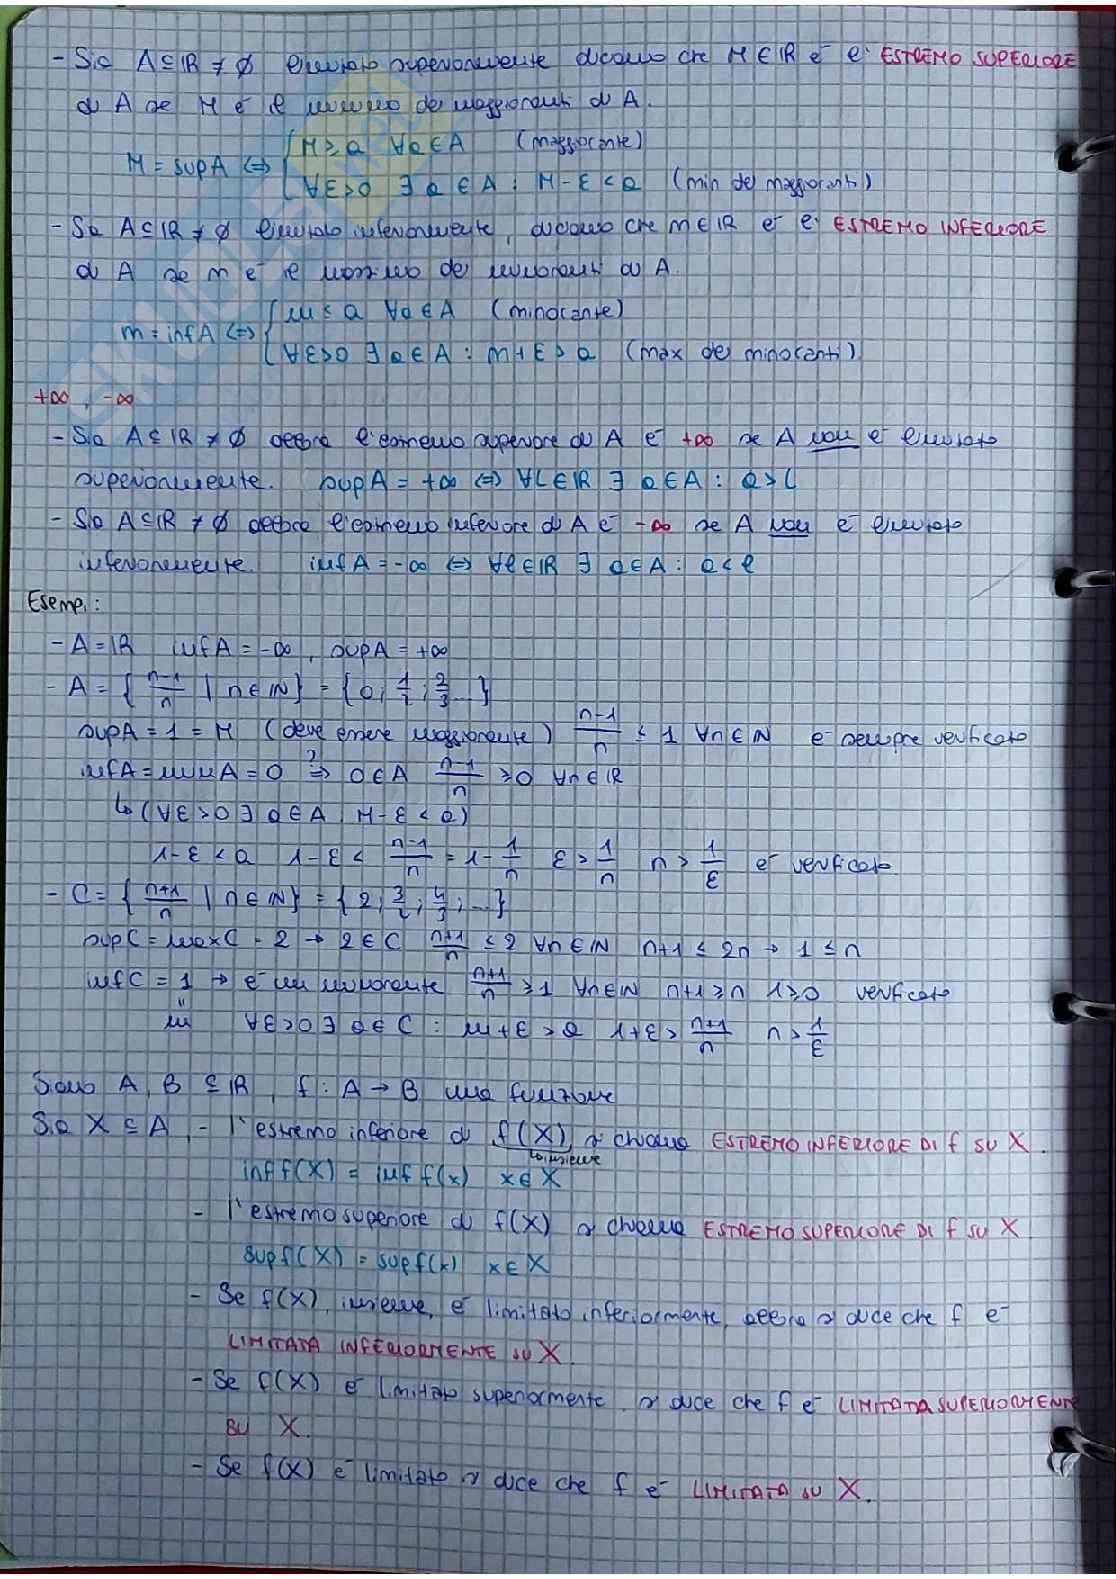 - Sia A ⊆ ℝ ≠ ∅ limitato superiormente diciamo che M ∈ ℝ è l' ESTREMO SUPERIORE
di A se M è il minimo dei maggioranti di A.
M = sup A ⇔ { M ≥ a ∀a ∈ A (maggiorante)
∀ε>0 ∃ a ∈ A : M-ε < a (min dei maggioranti)
- Sia A ⊆ ℝ ≠ ∅ limitato inferiormente, diciamo che m ∈ ℝ è l' ESTREMO INFERIORE
di A se m è il massimo dei minoranti di A.
m = inf A ⇔ { m ≤ a ∀a ∈ A (minorante)
∀ε>0 ∃ a ∈ A : m+ε > a (max dei minoranti)
+∞, -∞
- Sia A ⊆ ℝ ≠ ∅ allora l'estremo superiore di A è +∞ se A non è limitato
superiormente. sup A = +∞ ⇔ ∀L ∈ ℝ ∃ a ∈ A : a > L
- Sia A ⊆ ℝ ≠ ∅ allora l'estremo inferiore di A è -∞ se A non è limitato
inferiormente. inf A = -∞ ⇔ ∀l ∈ ℝ ∃ a ∈ A : a < l
Esempi:
- A = ℝ inf A = -∞, sup A = +∞
- A = { (n-1)/n | n ∈ ℕ } = { 0, 1/2, 2/3 ... }
sup A = 1 = M (deve essere maggiorante) (n-1)/n ≤ 1 ∀n ∈ ℕ è sempre verificato
inf A = min A = 0 ?⇒ 0 ∈ A (n-1)/n ≥ 0 ∀n ∈ ℝ
↳ (∀ε>0 ∃ a ∈ A M-ε < a)
1-ε < a 1-ε < (n-1)/n = 1 - 1/n ε > 1/n n > 1/ε è verificato
- C = { (n+1)/n | n ∈ ℕ } = { 2, 3/2, 4/3, ... }
sup C = max C = 2 → 2 ∈ C (n+1)/n ≤ 2 ∀n ∈ ℕ n+1 ≤ 2n → 1 ≤ n
inf C = 1 → è un minorante (n+1)/n ≥ 1 ∀n ∈ ℕ n+1 ≥ n 1 ≥ 0 verificato
" m ∀ε>0 ∃ a ∈ C : m+ε > a 1+ε > (n+1)/n n > 1/ε
Siano A, B ⊆ ℝ, f : A → B una funzione
Sia X ⊆ A, - l'estremo inferiore di f(X) si chiama ESTREMO INFERIORE DI f SU X.
↳ insieme
inf f(X) = inf f(x) x ∈ X
- l'estremo superiore di f(X) si chiama ESTREMO SUPERIORE DI f SU X
sup f(X) = sup f(x) x ∈ X
- Se f(X), insieme, è limitato inferiormente, allora si dice che f è
LIMITATA INFERIORMENTE SU X.
- Se f(X) è limitato superiormente, si dice che f è LIMITATA SUPERIORMENTE
SU X.
- Se f(X) è limitato si dice che f è LIMITATA SU X.